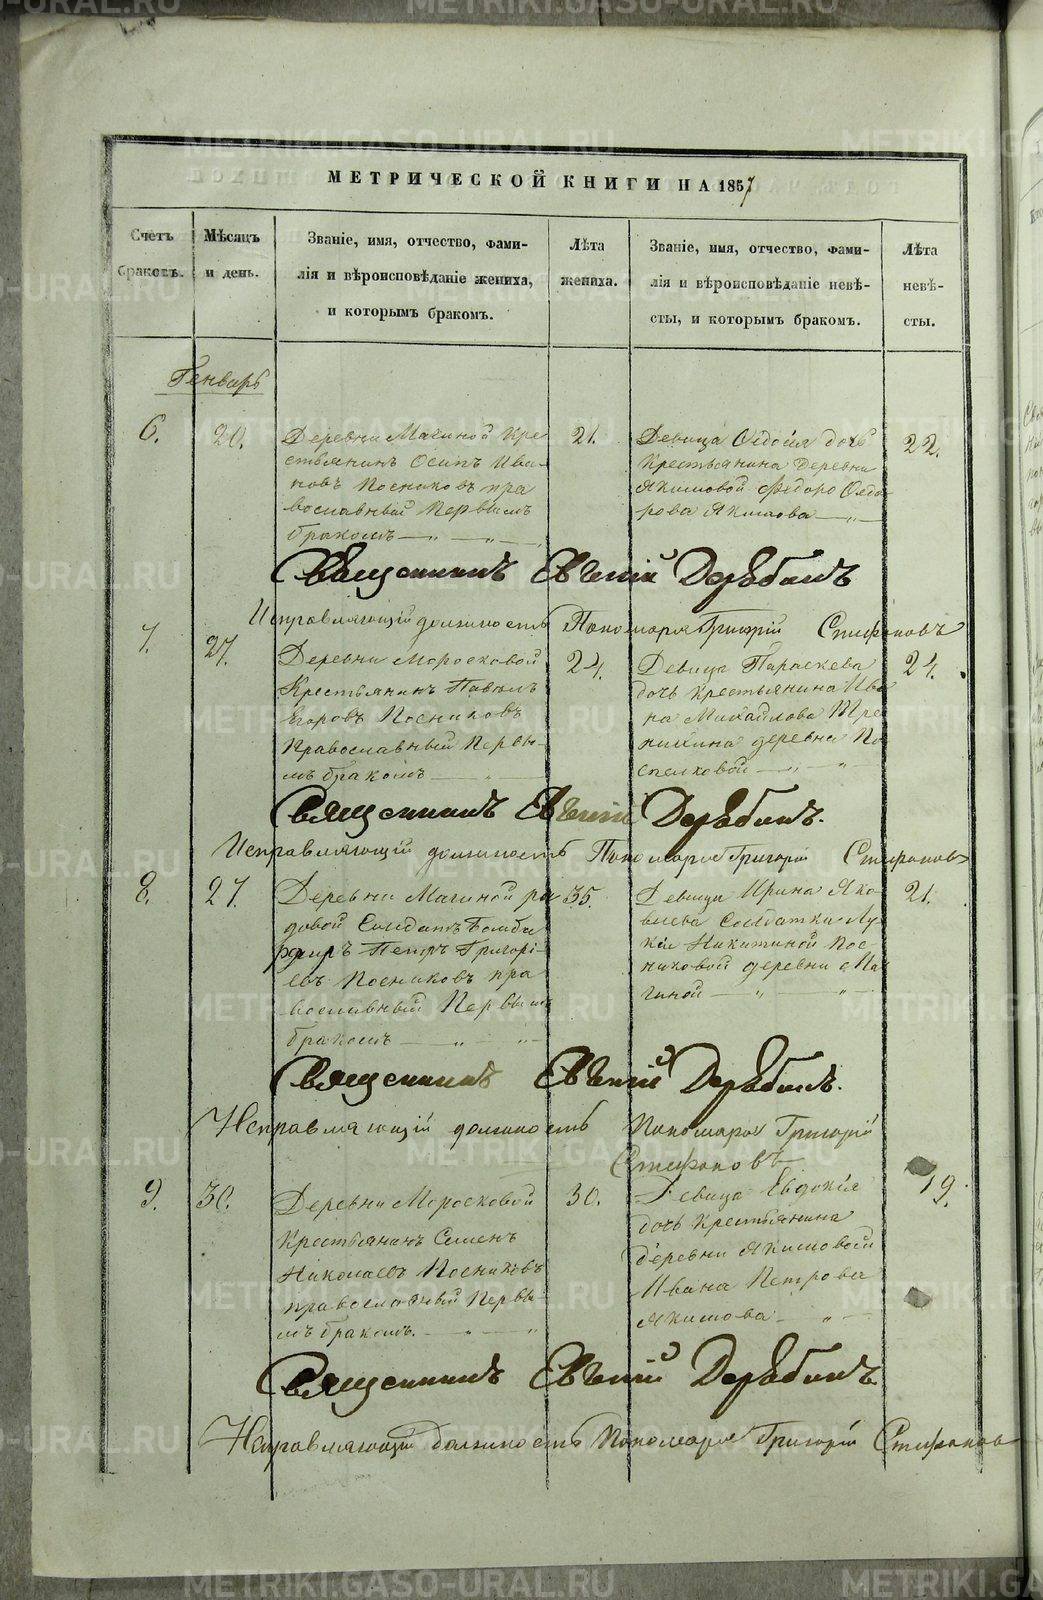 МЕТРИЧЕСКОЙ КНИГИ НА 1857
Счетъ браковъ.
Мѣсяцъ и день.
Званіе, имя, отчество, фами-
лія и вѣроисповѣданіе жениха,
и которымъ бракомъ.
Лѣта жениха.
Званіе, имя, отчество, фами-
лія и вѣроисповѣданіе невѣ-
сты, и которымъ бракомъ.
Лѣта невѣ-
сты.
Генварь
6.
20.
Деревни Мачиной Кре
стьянинъ Осипъ Ива-
новъ Посниковъ пра
вославный Первымъ
бракомъ
21.
Девица Федосія дочь
Крестьянина деревни
Якимовой Федоро Федо
рова Якимова
22.
Священникъ Евгеній Дерябинъ
Исправляющій должность Пономаря Григорій Стефановъ
7.
27.
Деревни Моросковой
Крестьянинъ Павелъ
Егоровъ Посниковъ
Православный Первы-
мъ бракомъ
24.
Девица Параскева
дочь крестьянина Ива
на Михайлова Тре
нихина деревни По
спелковой
24.
Священникъ Евгеній Дерябинъ.
Исправляющій должность Пономаря Григорій Стефановъ
8.
27.
Деревни Мачиной ря
довой Солдатъ Бомба
рдиръ Петръ Григорі-
евъ Посниковъ пра
вославный Первымъ
бракомъ
35.
Девица Ирина Яко-
влева Солдатки Лу-
кіи Никитиной Пос-
никовой деревни Ма
чиной
21.
Священникъ Евгеній Дерябинъ.
Исправляющій должность Пономаря Григорій
Стефановъ
9.
30.
Деревни Моросковой
Крестьянинъ Семенъ
Николаевъ Посниковъ
православный Первы-
мъ бракомъ.
30.
Девица Евдокія
дочь Крестьянина
деревни Якимовой
Ивана Петрова
Якимова
19.
Священникъ Евгеній Дерябинъ
Исправляющій должность Пономаря Григорій Стефанов
METRIKI.GASO-URAL.RU